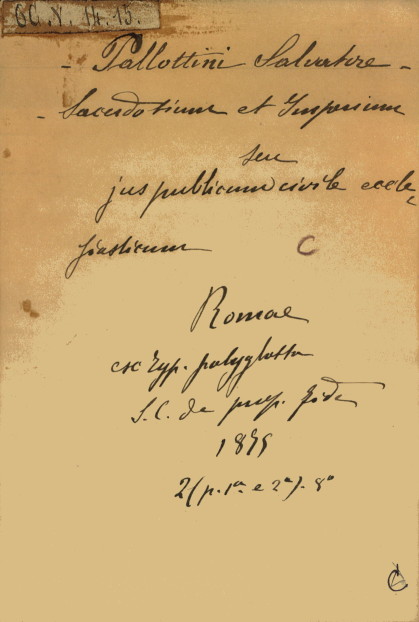 CC. N. 14. 15.
- Pallottini Salvatore -
- Sacerdotium et Imperium
seu
jus publicum civile eccle-
siasticum
C
Romae
ex Typ. polyglotta
S.C. de prop. fide
1875
2 (p. 1a e 2a). 8º
C